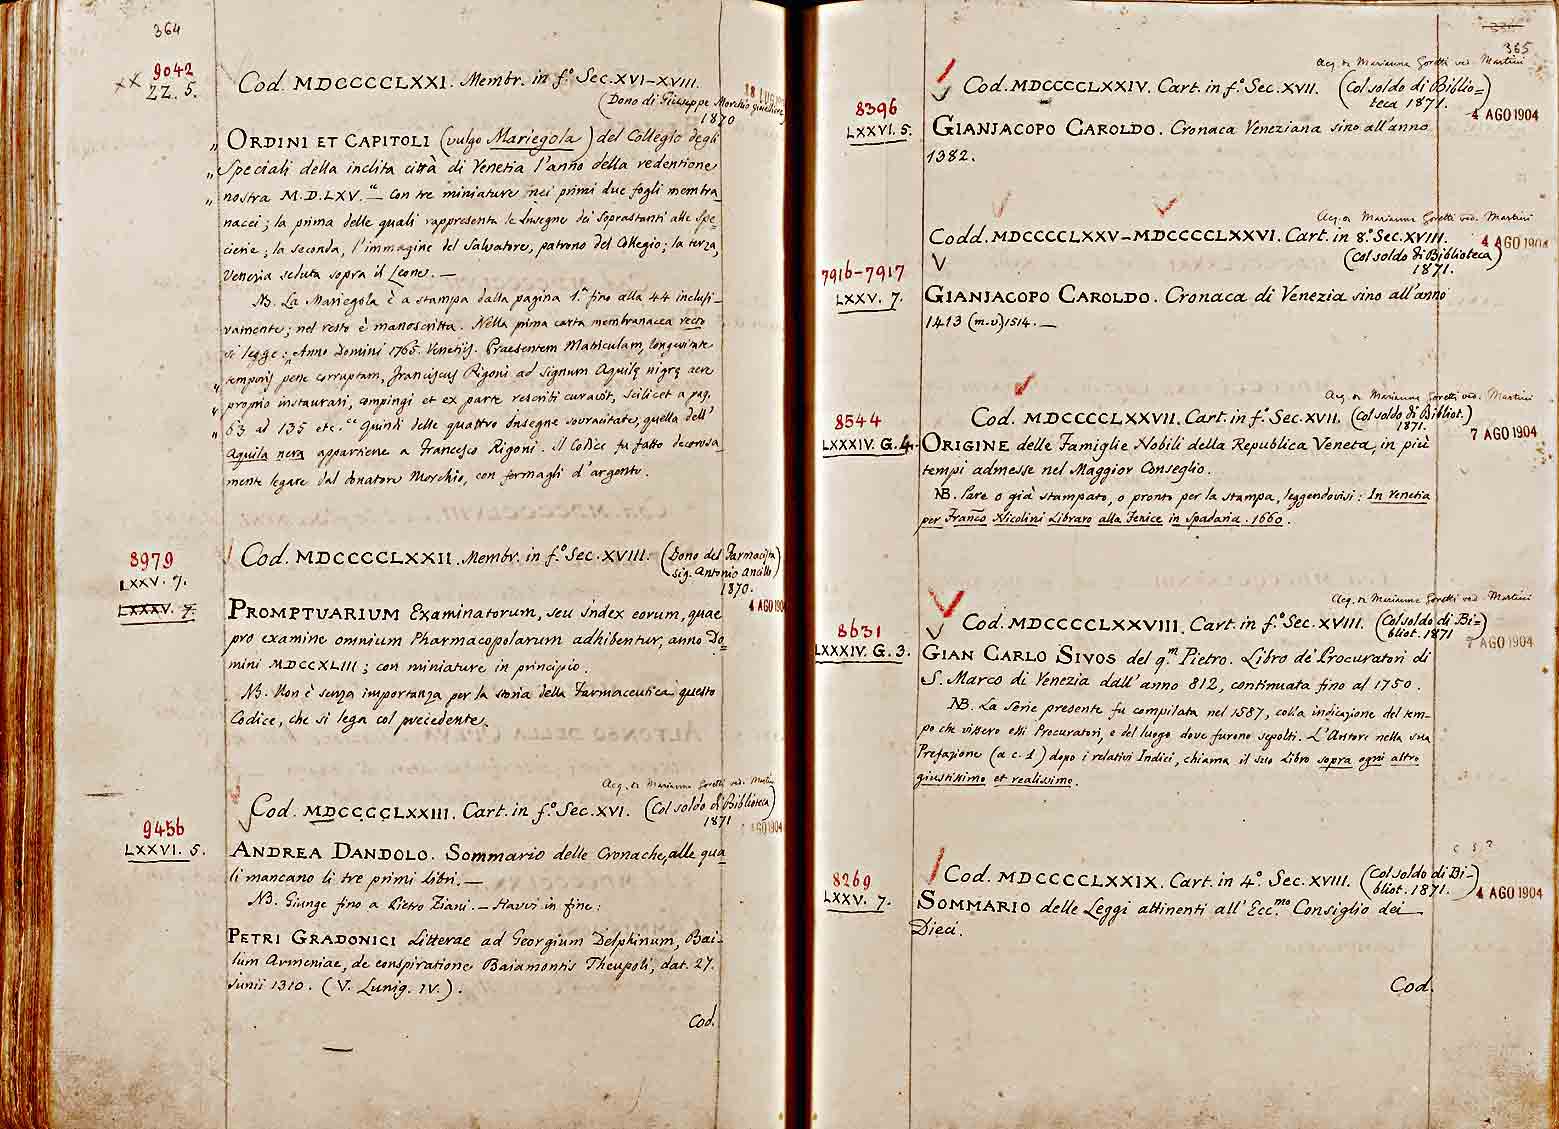 364
9042
XX ZZ. 5.
Cod. MDCCCCCLXXI. Membr. in f.º Sec. XVI-XVIII.
(Dono di Giuseppe Morchio giudice)
1870
18 LUG
„ ORDINI ET CAPITOLI (vulgo Mariegola) del Collegio degli
„ Speciali della inclita città di Venetia l'anno della redentione
„ nostra M.D.LXV." — Con tre miniature nei primi due fogli membra
nacei; la prima delle quali rappresenta le Insegne dei soprastanti alle spe=
cierie; la seconda, l'immagine del Salvatore, patrono del Collegio; la terza,
Venezia seduta sopra il Leone. —
NB. La Mariegola è a stampa dalla pagina 1.ª fino alla 44 inclusi-
vamente; nel resto è manoscritta. Nella prima carta membranacea recto
si legge: „Anno Domini 1765. Venetijs. Praesentem Matriculam, longevitate
„ temporis pene corruptam, Franciscus Rigoni ad signum Aquilę nigrę aere
„ proprio instaurari, compingi et ex parte rescribi curavit, scilicet a pag.
„ 63 ad 135 etc." Quindi delle quattro Insegne sovraccitate, quella dell'
Aquila nera appartiene a Francesco Rigoni. Il Codice fu fatto decorosa
mente legare dal donatore Morchio, con fermagli d'argento.
8979
LXXV. 7.
LXXXV. 7.
Cod. MDCCCCCLXXII. Membr. in f.º Sec. XVIII. (Dono del Farmacista
sig. Antonio Ancillo
1870.
4 AGO 1904
PROMPTUARIUM Examinatorum, seu index eorum, quae
pro examine omnium Pharmacopolarum adhibentur, anno Do=
mini MDCCXLIII; con miniature in principio.
NB. Non è senza importanza per la storia della Farmaceutica questo
Codice, che si lega col precedente.
Acq. da Marianna Goretti ved. Martini
9456
LXXVI. 5.
Cod. MDCCCCCLXXIII. Cart. in f.º Sec. XVI. (Col soldo di Biblioteca)
1871
AGO 1904
ANDREA DANDOLO. Sommario delle Cronache, alle qua
li mancano li tre primi Libri. —
NB. Giunge fino a Pietro Ziani. — Havvi in fine:
PETRI GRADONICI Litterae ad Georgium Delphinum, Bai-
lum Armeniae, de conspiratione Baiamontis Theupoli, dat. 27.
Junii 1310. (V. Lunig. IV.).
Cod.
365
Acq. da Marianna Goretti ved. Martini
8396
LXXVI. 5.
Cod. MDCCCCCLXXIV. Cart. in f.º Sec. XVII. (Col soldo di Biblio=
teca 1871.)
4 AGO 1904
GIANJACOPO CAROLDO. Cronaca Veneziana sino all'anno
1382.
Acq. da Marianna Goretti ved. Martini
Codd. MDCCCCCLXXV–MDCCCCCLXXVI. Cart. in 8.º Sec. XVIII.
(Col soldo di Biblioteca)
1871.
4 AGO 1904
7916-7917
LXXV. 7.
GIANJACOPO CAROLDO. Cronaca di Venezia sino all'anno
1413 (m.v.) 1514. —
Acq. da Marianna Goretti ved. Martini
8544
LXXXIV. G. 4.
Cod. MDCCCCCLXXVII. Cart. in f.º Sec. XVII. (Col soldo di Bibliot.)
1871.
7 AGO 1904
ORIGINE delle Famiglie Nobili della Republica Veneta, in più
tempi admesse nel Maggior Conseglio.
NB. Pare o già stampato, o pronto per la stampa, leggendovisi: In Venetia
per Franco Nicolini Libraro alla Fenice in Spadaria. 1660.
Acq. da Marianna Goretti ved. Martini
8631
LXXXIV. G. 3.
Cod. MDCCCCCLXXVIII. Cart. in f.º Sec. XVIII. (Col soldo di Bi=
bliot. 1871)
7 AGO 1904
GIAN CARLO SIVOS del q.m Pietro. Libro de' Procuratori di
S. Marco di Venezia dall'anno 812, continuata fino al 1750.
NB. La Serie presente fu compilata nel 1587, coll'a indicazione del tem-
po che vissero essi Procuratori, e del luogo dove furono sepolti. L'Autore nella sua
Prefazione (a c. 1) dopo i relativi Indici, chiama il suo Libro sopra ogni altro
giustissimo et realissimo.
c s ?
8269
LXXV. 7.
Cod. MDCCCCCLXXIX. Cart. in 4.º Sec. XVIII. (Col soldo di Bi=
bliot. 1871.)
4 AGO 1904
SOMMARIO delle Leggi attinenti all'Ecc.mo Consiglio dei
Dieci.
Cod.